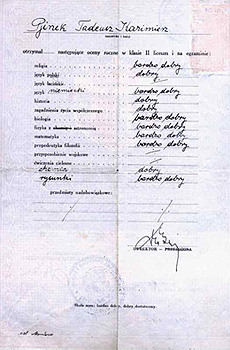 Tadeusz Kazimierz
otrzymał następujące oceny roczne w klasie II liceum i na egzaminie:
religia bardzo dobry
język polski dobry
język łaciński
język niemiecki bardzo dobry
historia dobry
zagadnienia życia współczesnego dobry
biologia bardzo dobry
fizyka z astronomią bardzo dobry
matematyka bardzo dobry
propedeutyka filozofii bardzo dobry
przysposobienie wojskowe
ćwiczenia cielesne dobry
chemia bardzo dobry
rysunki bardzo dobry
przedmioty nadobowiązkowe:
DYREKTOR - PRZEŁOŻONA
Skala ocen: bardzo dobry, dobry, dostateczny.